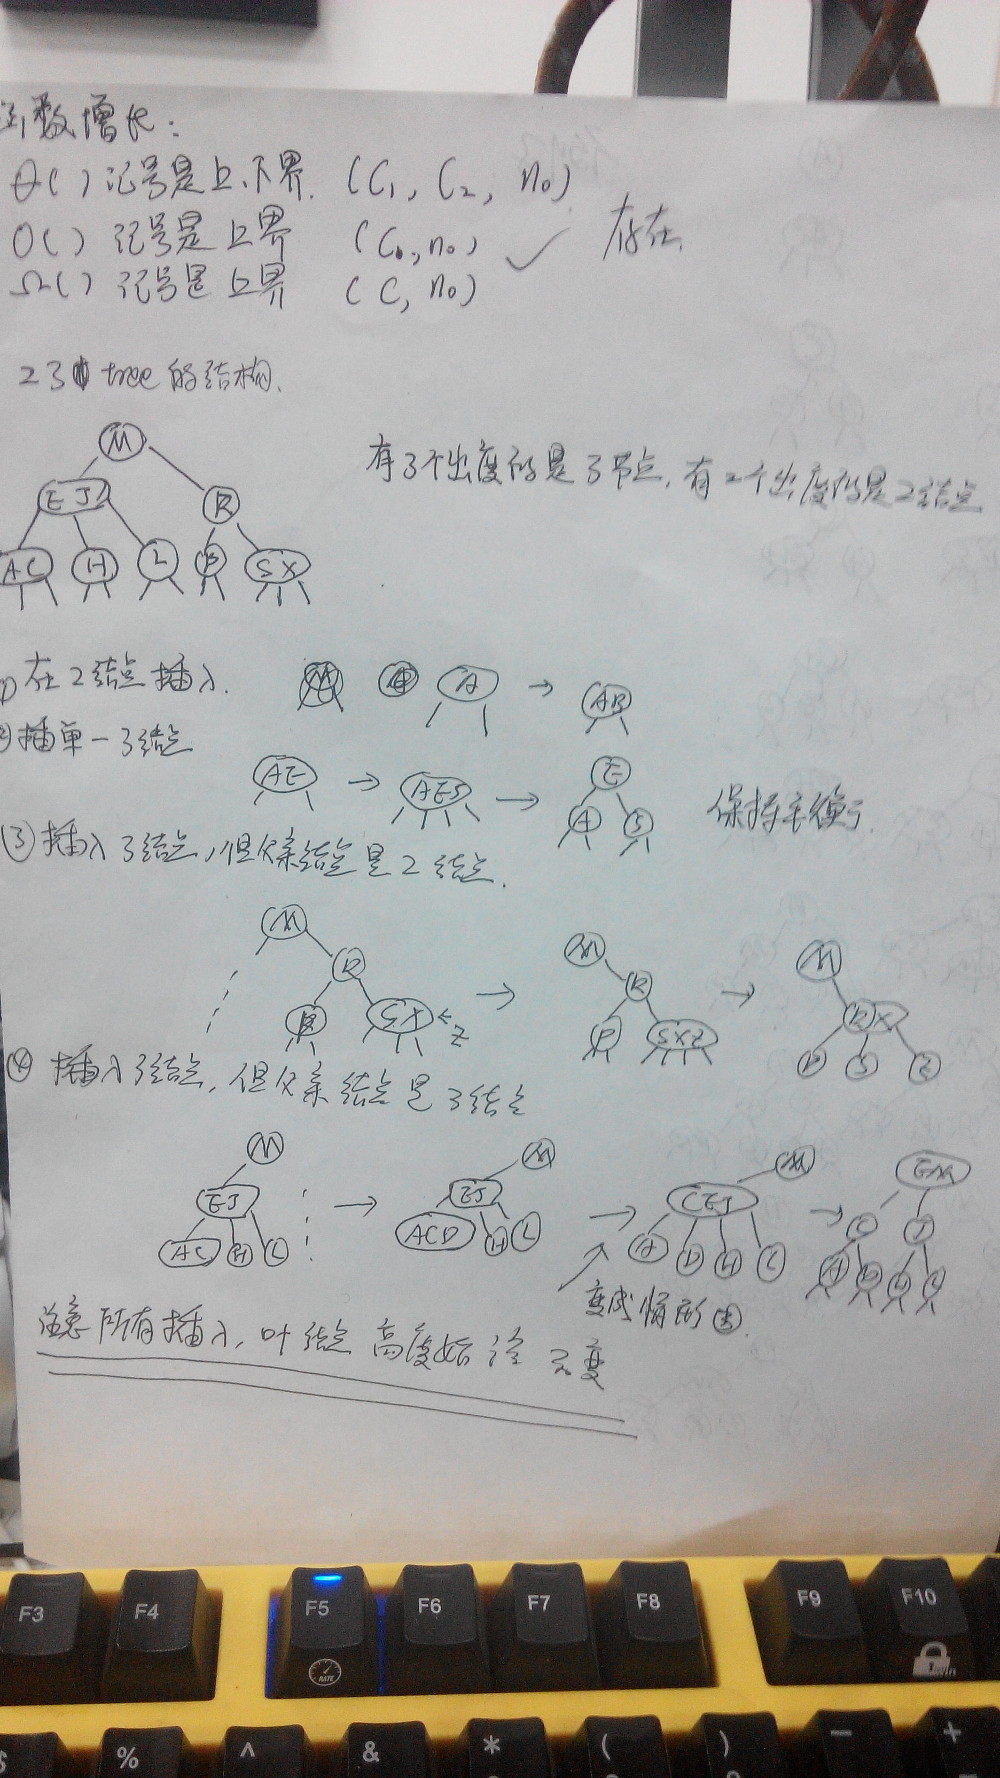 函数增长:
θ( ) 记号是上、下界. (C₁, C₂, n₀)
O( ) 记号是上界 (C, n₀) ✓ 存在.
Ω( ) 记号是上界 (C, n₀)
23 tree 的结构.
M
EJ R
AC H L P SX
有3个出度的是3节点, 有2个出度的是2结点
(1) 在2结点插入.
A → AB
② 插单一3结点
AE → AES → E
A S
保持平衡.
(3) 插入3结点, 但父亲结点是2结点.
M → M → M
R R RX
P SX ← Z P SXZ P S Z
④ 插入3结点, 但父亲结点是3结点
M → M → M → EM
EJ EJ CEJ C J
AC H L ACD H L A D H L A D H L
变成情形
注意 所有插入, 叶结点 高度始 终 不变
F3 F4 F5 F6 F7 F8 F9 F10
RATE
Win
$ % ^ & * ( ) — +